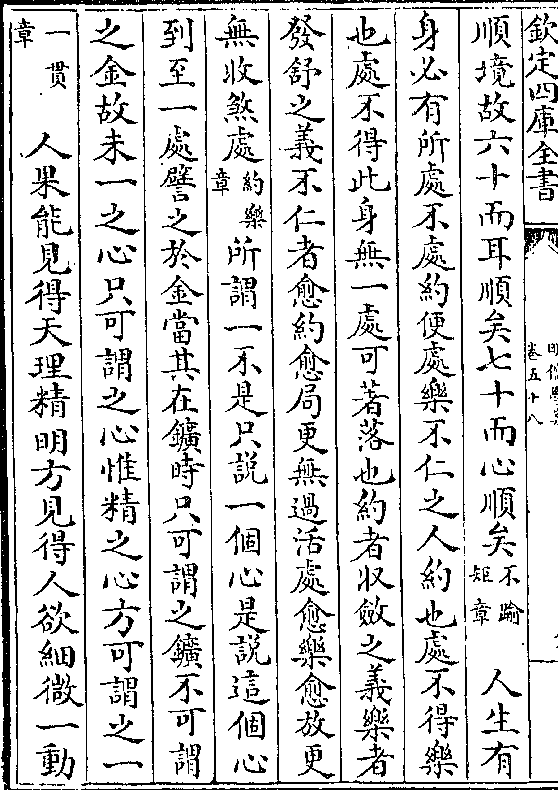 欽定四庫全書
明儒學案
卷五十八
順境故六十而耳順矣七十而心順矣不踰矩章 人生有
身必有所處不處約便處樂不仁之人約也處不得樂
也處不得此身無一處可著落也約者收斂之義樂者
發舒之義不仁者愈約愈局更無過活處愈樂愈放更
無收煞處約樂章所謂一不是只説一個心是説這個心
到至一處譬之於金當其在鑛時只可謂之鑛不可謂
之金故未一之心只可謂之心惟精之心方可謂之一
一貫章 人果能見得天理精明方見得人欲細微一動